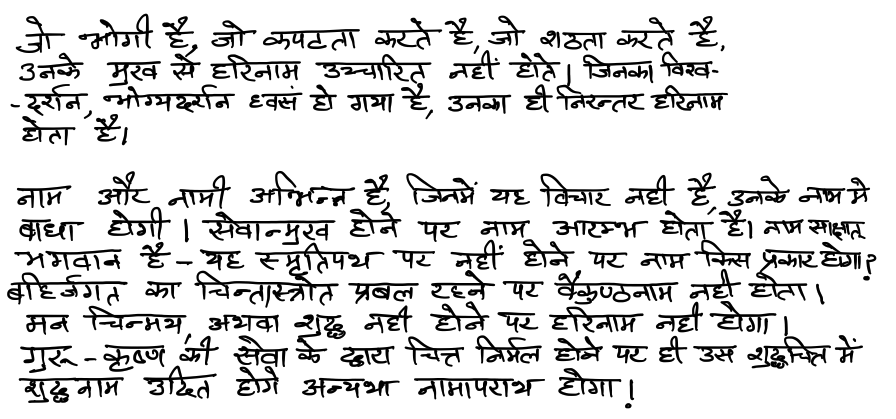 जो भोगी है, जो कपटता करते है, जो शठता करते है,
उनके मुख से हरिनाम उच्चारित नहीं होते। जिनका विश्व-
-दर्शन, भोग्यदर्शन ध्वसं हो गया है, उनका ही निरन्तर हरिनाम
होता है।
नाम और नामी अभिन्न है, जिनमें यह विचार नही है, उनके नाम मे
बाधा होगी। सेवान्मुख होने पर नाम आरम्भ होता है। नाम साक्षात्
भगवान है - यह स्मृतिपथ पर नहीं होने पर नाम किस प्रकार होगा?
बहिर्जगत का चिन्तास्त्रोत प्रबल रहने पर वैकुण्ठनाम नही होता।
मन चिन्मय, अथवा शुद्ध नही होने पर हरिनाम नही होगा।
गुरू - कृष्ण की सेवा के द्वारा चित्त निर्मल होने पर ही उस शुद्धचित्त में
शुद्धनाम उदित होगे अन्यथा नामापराध होगा!